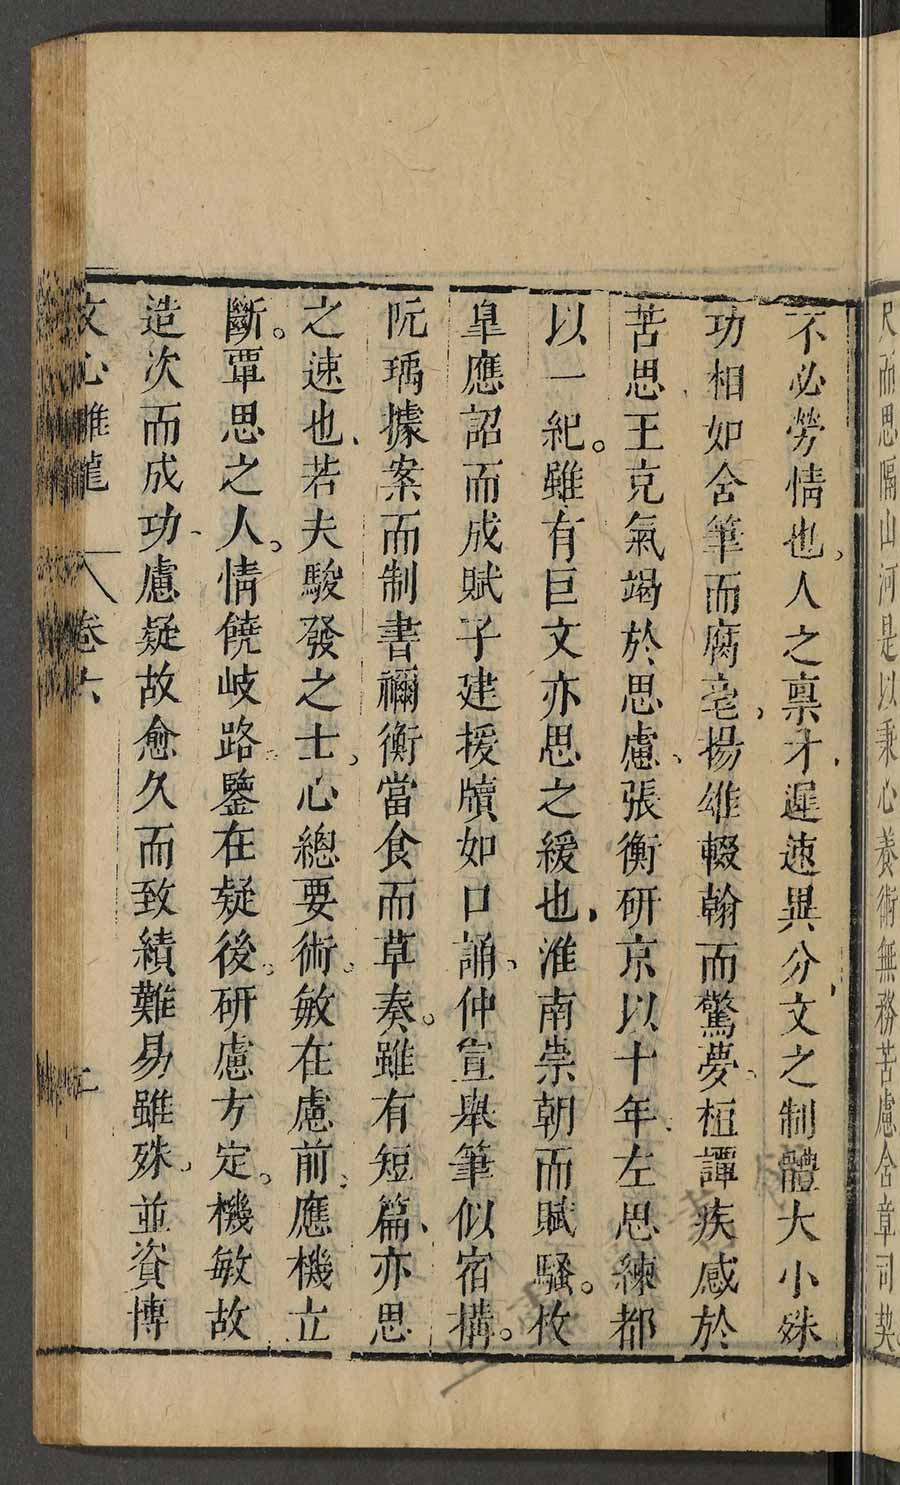 尺而思隔山河是以秉心養術無務苦慮含章司契
不必勞情也人之稟才遲速異分文之制體大小殊
功相如含筆而腐毫揚雄輟翰而驚夢桓譚疾感於
苦思王充氣竭於思慮張衡研京以十年左思練都
以一紀。雖有巨文亦思之緩也淮南崇朝而賦騷。枚
皐應詔而成賦子建援牘如口誦、仲宣舉筆似宿搆。
阮瑀據案而制書禰衡當食而草奏。雖有短篇、亦思
之速也、若夫駿發之士、心總要術。敏在慮前、應機立
斷。覃思之人。情饒岐路。鑒在疑後。研慮方定。機敏故
造次而成功、慮疑故愈久而致績難易雖殊、並資博
文心雕龍 卷六 二